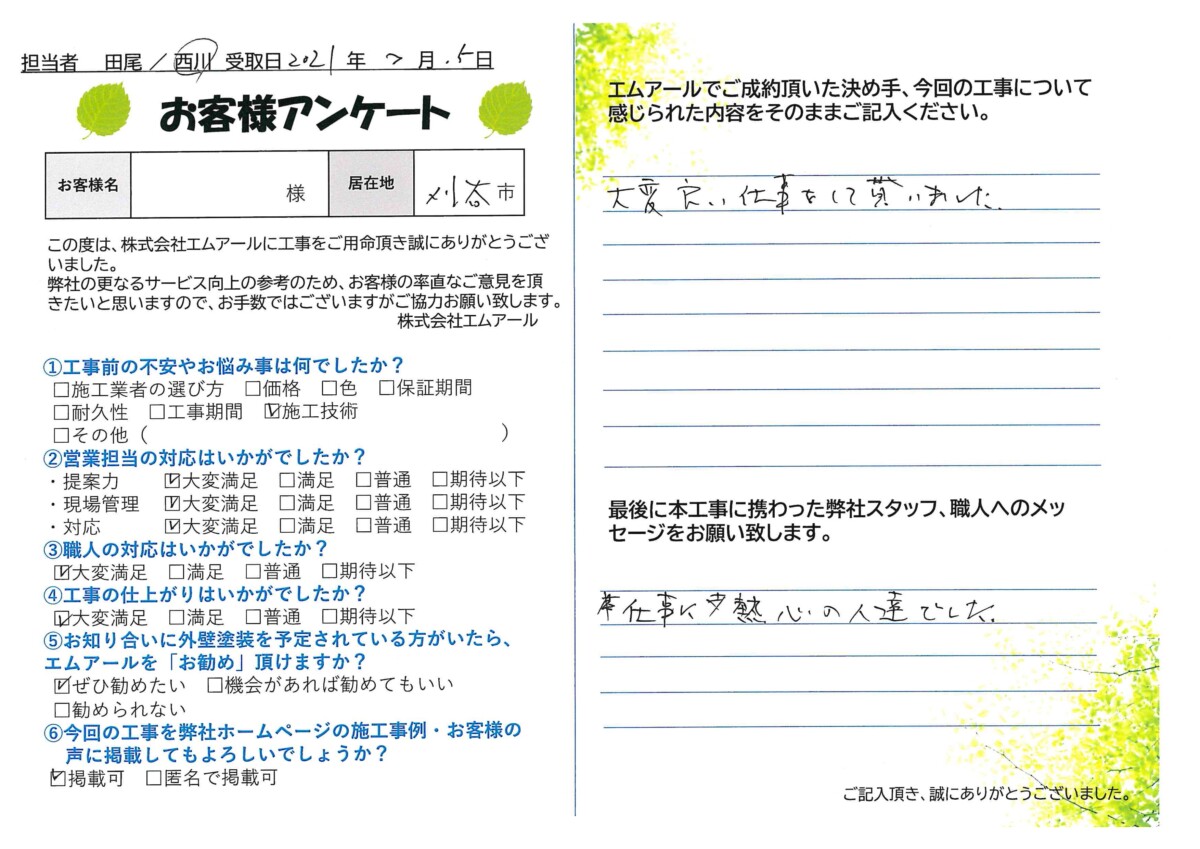 担当者 田尾／西川 受取日2021年 7月.5日
お客様アンケート
お客様名 様 居在地 刈谷市
この度は、株式会社エムアールに工事をご用命頂き誠にありがとうござ
いました。
弊社の更なるサービス向上の参考のため、お客様の率直なご意見を頂
きたいと思いますので、お手数ではございますがご協力お願い致します。
株式会社エムアール
①工事前の不安やお悩み事は何でしたか？
□施工業者の選び方 □価格 □色 □保証期間
□耐久性 □工事期間 ☑施工技術
□その他（ ）
②営業担当の対応はいかがでしたか？
・提案力 ☑大変満足 □満足 □普通 □期待以下
・現場管理 ☑大変満足 □満足 □普通 □期待以下
・対応 ☑大変満足 □満足 □普通 □期待以下
③職人の対応はいかがでしたか？
☑大変満足 □満足 □普通 □期待以下
④工事の仕上がりはいかがでしたか？
☑大変満足 □満足 □普通 □期待以下
⑤お知り合いに外壁塗装を予定されている方がいたら、
エムアールを「お勧め」頂けますか？
☑ぜひ勧めたい □機会があれば勧めてもいい
□勧められない
⑥今回の工事を弊社ホームページの施工事例・お客様の
声に掲載してもよろしいでしょうか？
☑掲載可 □匿名で掲載可
エムアールでご成約頂いた決め手、今回の工事について
感じられた内容をそのままご記入ください。
大変良い仕事をして貰いました.
最後に本工事に携わった弊社スタッフ、職人へのメッ
セージをお願い致します。
仕事に熱心の人達でした.
ご記入頂き、誠にありがとうございました。